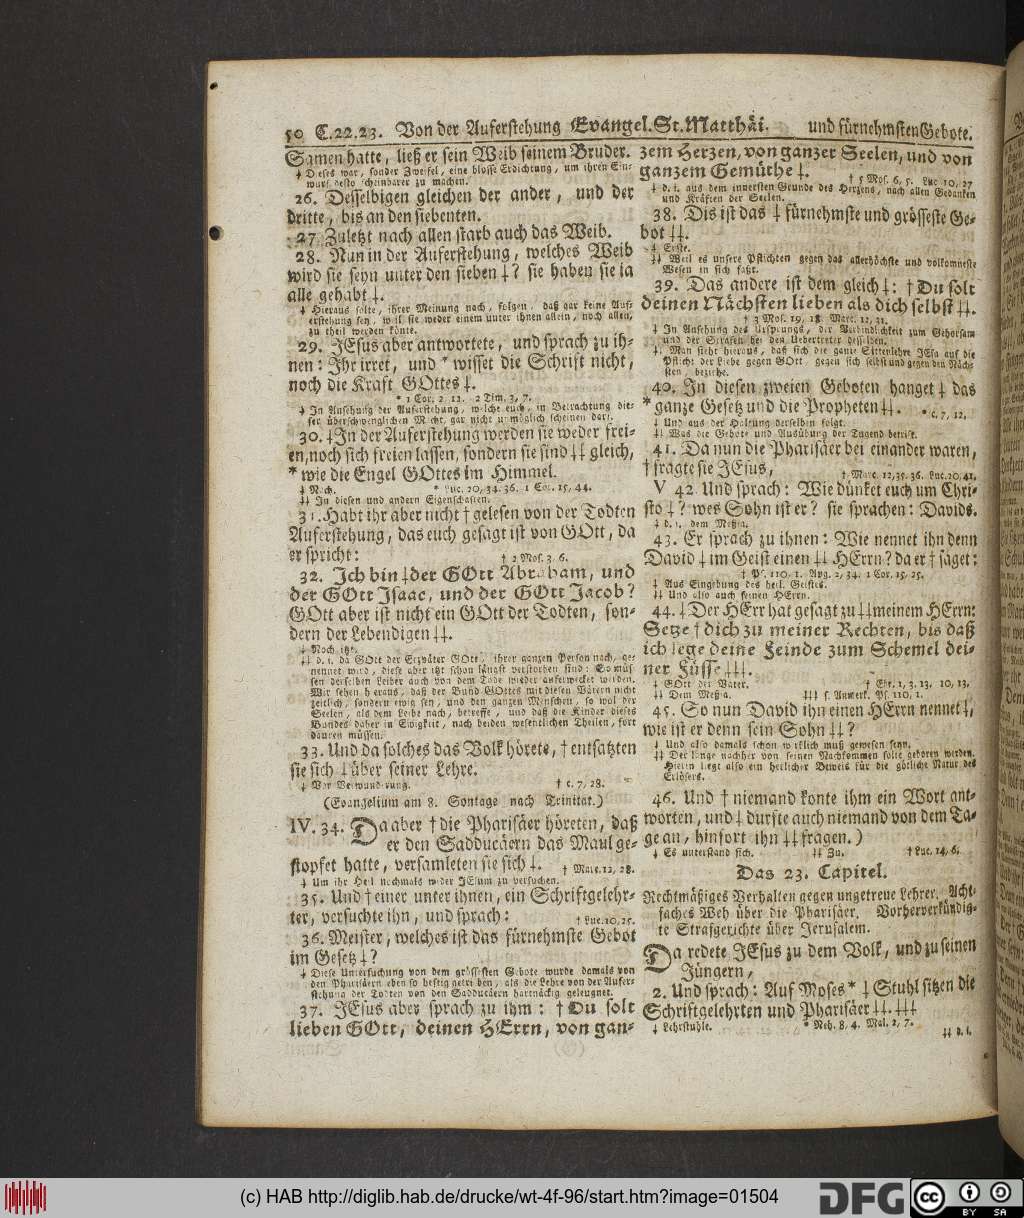 50 C.22.23. Von der Auferstehung Evangel. St. Matthäi. und fürnehmsten Gebote.
Samen hatte, ließ er sein Weib seinem Bruder.
‡ Dieses war, sonder Zweifel, eine blosse Erdichtung, um ihren Ein-
wurf desto scheinbarer zu machen.
26. Desselbigen gleichen der ander, und der
dritte, bis an den siebenten.
27. Zuletzt nach allen starb auch das Weib.
28. Nun in der Auferstehung, welches Weib
wird sie seyn unter den sieben ‡? sie haben sie ja
alle gehabt ‡.
‡ Hieraus solte, ihrer Meinung nach, folgen, daß gar keine Auf-
erstehung sey, weil sie weder einem unter ihnen allein, noch allen,
zu theil werden könte.
29. JEsus aber antwortete, und sprach zu ih-
nen: Ihr irret, und * wisset die Schrift nicht,
noch die Kraft GOttes ‡.
* 1 Cor. 2, 12. 2 Tim. 3, 7.
‡ In Ansehung der Auferstehung, welche euch, in Betrachtung die-
ser überschwenglichen Macht, gar nicht unmöglich scheinen darf.
30. ‡ In der Auferstehung werden sie weder frei-
en, noch sich freien lassen, sondern sie sind ‡‡ gleich,
* wie die Engel GOttes im Himmel.
‡ Nach. * Luc. 20, 34. 36. 1 Cor. 15, 44.
‡‡ In diesen und andern Eigenschaften.
31. Habt ihr aber nicht † gelesen von der Todten
Auferstehung, das euch gesagt ist von GOtt, da
er spricht: † 2 Mos. 3, 6.
32. Ich bin ‡ der GOtt Abraham, und
der GOtt Isaac, und der GOtt Jacob?
GOtt aber ist nicht ein GOtt der Todten, son-
dern der Lebendigen ‡‡.
‡ Noch itzt.
‡‡ d. i. da GOtt der Erzväter GOtt, ihrer ganzen Person nach, ge-
nennet wird, diese aber itzt schon längst verstorben sind: So müs-
sen derselben Leiber auch von dem Tode wieder auferwecket werden.
Wir sehen hieraus, daß der Bund GOttes mit diesen Vätern nicht
zeitlich, sondern ewig sey, und den ganzen Menschen, so wol der
Seelen, als dem Leibe nach, betreffe, und daß die Kinder dieses
Bundes daher in Ewigkeit, nach beiden wesentlichen Theilen, fort
dauren müssen.
33. Und da solches das Volk hörete, † entsatzten
sie sich ‡ über seiner Lehre.
‡ Vor Verwunderung. † c. 7, 28.
(Evangelium am 8. Sontage nach Trinitat.)
IV. 34. Da aber † die Pharisäer höreten, daß
er den Sadducäern das Maul ge-
stopfet hatte, versamleten sie sich ‡. † Marc. 12, 28.
‡ Um ihr Heil nochmals wider JEsum zu versuchen.
35. Und † einer unter ihnen, ein Schriftgelehr-
ter, versuchte ihn, und sprach: † Luc. 10, 25.
36. Meister, welches ist das fürnehmste Gebot
im Gesetz ‡?
‡ Diese Untersuchung von dem grössesten Gebote wurde damals von
den Pharisäern eben so heftig getrieben, als die Lehre von der Aufer-
stehung der Todten von den Sadducäern hartnäckig geleugnet.
37. JEsus aber sprach zu ihm: † Du solt
lieben GOtt, deinen HErrn, von gan-
zem Herzen, von ganzer Seelen, und von
ganzem Gemüthe ‡. † 5 Mos. 6, 5. Luc. 10, 27
‡ d. i. aus dem innersten Grunde des Herzens, nach allen Gedanken
und Kräften der Seelen.
38. Dis ist das ‡ fürnehmste und grösseste Ge-
bot ‡‡.
‡ Erste.
‡‡ Weil es unsere Pflichten gegen das allerhöchste und volkomneste
Wesen in sich faßt.
39. Das andere ist dem gleich ‡: † Du solt
deinen Nächsten lieben als dich selbst ‡‡.
† 3 Mos. 19, 18. Marc. 12, 31.
‡ In Ansehung des Ursprungs, der Verbindlichkeit zum Gehorsam
und der Strafen bei den Uebertreter desselben.
‡‡ Man sieht hieraus, daß sich die ganze Sittenlehre JEsu auf die
Pflicht der Liebe gegen GOtt, gegen sich selbst und gegen den Näch-
sten, beziehe.
40. In diesen zweien Geboten hanget ‡ das
* ganze Gesetz und die Propheten ‡‡. * c. 7, 12.
‡ Und aus der Haltung derselben folgt.
‡‡ Was die Gebote und Ausübung der Tugend betrift.
41. Da nun die Pharisäer bei einander waren,
† fragte sie JEsus, † Marc. 12, 35. 36. Luc. 20, 41.
V 42. Und sprach: Wie dünket euch um Chri-
sto ‡? wes Sohn ist er? sie sprachen: Davids.
‡ d. i. dem Meßia.
43. Er sprach zu ihnen: Wie nennet ihn denn
David ‡ im Geist einen ‡‡ HErrn? da er † saget:
† Ps. 110, 1. Apg. 2, 34. 1 Cor. 15, 25.
‡ Aus Eingebung des heil. Geistes.
‡‡ Und also auch seinen HErrn.
44. ‡ Der HErr hat gesagt zu ‡‡ meinem HErrn:
Setze † dich zu meiner Rechten, bis daß
ich lege deine Feinde zum Schemel dei-
ner Füsse ‡‡‡.
‡ GOtt der Vater. † Ebr. 1, 3. 13. 10, 13.
‡‡ Dem Meßia. ‡‡‡ s. Anmerk. Ps. 110, 1.
45. So nun David ihn einen HErrn nennet ‡,
wie ist er denn sein Sohn ‡‡?
‡ Und also damals schon wirklich muß gewesen seyn.
‡‡ Der lange nachher von seinen Nachkommen solte geboren werden.
Hierin liegt also ein herlicher Beweis für die götliche Natur des
Erlösers.
46. Und † niemand konte ihm ein Wort ant-
worten, und ‡ durfte auch niemand von dem Ta-
ge an, hinfort ihn ‡‡ fragen.)
‡ Es unterstand sich. ‡‡ Zu. † Luc. 14, 6.
Das 23. Capitel.
Rechtmäßiges Verhalten gegen ungetreue Lehrer. Acht-
faches Weh über die Pharisäer. Vorherverkündig-
te Strafgerichte über Jerusalem.
Da redete JEsus zu dem Volk, und zu seinen
Jüngern,
2. Und sprach: Auf Moses * ‡ Stuhl sitzen die
Schriftgelehrten und Pharisäer ‡‡. ‡‡‡
‡ Lehrstuhle. * Neh. 8, 4. Mal. 2, 7.
‡‡ d. i.
(c) HAB http://diglib.hab.de/drucke/wt-4f-96/start.htm?image=01504
DFG
cc BY SA